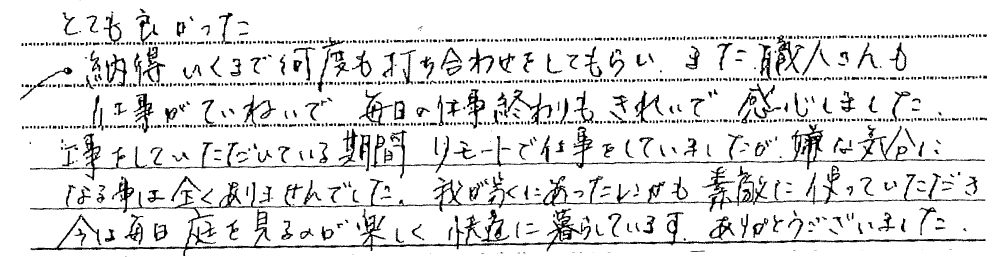 とても良かった
・納得いくまで何度も打ち合わせをしてもらい、また職人さんも
仕事がていねいで 毎日の仕事終わりもきれいで 感心しました。
工事をしていただいている期間 リモートで仕事をしていましたが、嫌な気分に
なる事は全くありませんでした。我が家にあったレンガも素敵に使っていただき
今は毎日庭を見るのが楽しく快適に暮らしています。ありがとうございました。